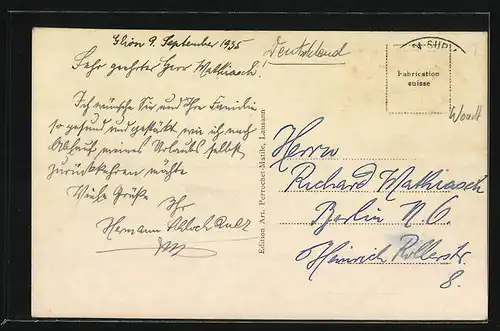 Glion 9. September 1935
Sehr geehrter Herr Mathiasch!
Ich wünsche Sie und Ihre Familie
so gesund und gestärkt, wie ich nach
Ablauf meines Urlaubs selbst
zurückkehren möchte
Viele Grüße
Ihr
Hermann
Deutschland
Fabrication
suisse
Edition Art. Perrochet-Matile, Lausann
Herrn
Richard Mathiasch
Berlin N.O.
Heinrich Rollerstr.
8.